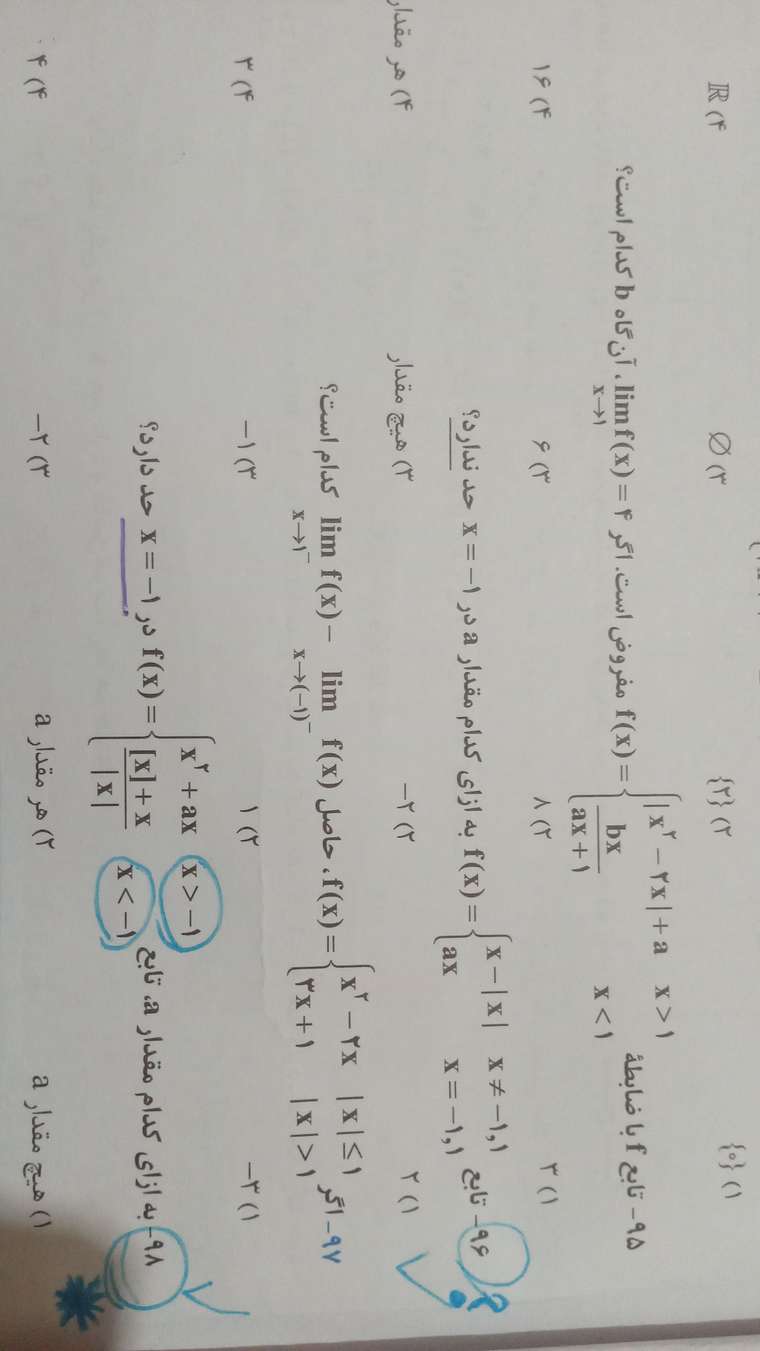 ۱) {۰}   ۲) {۲}   ۳) ∅   ۴) ℝ
۹۵- تابع f با ضابطهٔ f(x) = { |x² − ۲x| + a   x > ۱
bx / (ax + ۱)   x < ۱ مفروض است. اگر lim f(x) = ۴ (x→۱)، آن‌گاه b کدام است؟
۱) ۳   ۲) ۸   ۳) ۶   ۴) ۱۶
۹۶- تابع f(x) = { x − |x|   x ≠ −۱,۱
ax   x = −۱,۱ به ازای کدام مقدار a در x = −۱ حد ندارد؟
۱) ۲   ۲) −۲   ۳) هیچ مقدار   ۴) هر مقدار
۹۷- اگر f(x) = { x² − ۲x   |x| ≤ ۱
۳x + ۱   |x| > ۱ ، حاصل lim f(x) (x→۱⁻) − lim f(x) (x→(−۱)⁻) کدام است؟
۱) −۳   ۲) ۱   ۳) −۱   ۴) ۳
۹۸- به ازای کدام مقدار a، تابع f(x) = { x² + ax   x > −۱
([x] + x) / |x|   x < −۱ در x = −۱ حد دارد؟
۱) هیچ مقدار a   ۲) هر مقدار a   ۳) −۲   ۴) ۴